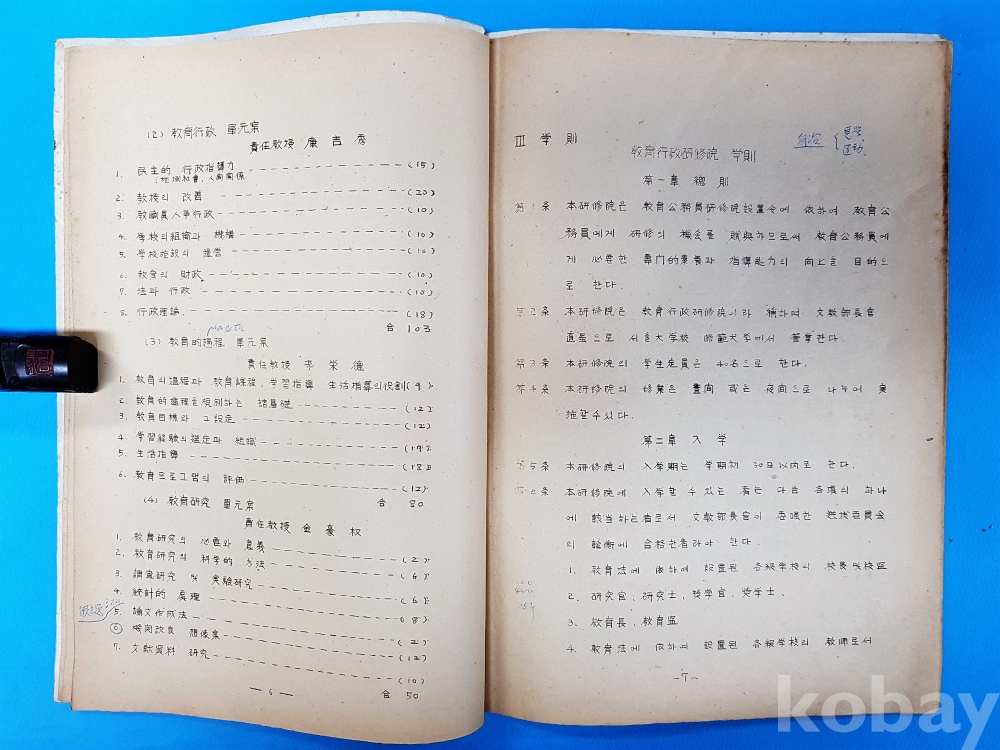 (2) 教育行政 單元案
責任教授 康吉秀
1. 民主的 行政指導力 (15)
人間関係
2. 教授의 改善 (20)
3. 教職員人事行政 (10)
4. 學校의 組織과 機構 (10)
5. 学校施設의 運営 (10)
6. 教育의 財政 (10)
7. 法과 行政 (10)
8. 行政理論 (18)
合 103
(3) 教育的過程 單元案
責任教授 李榮德
1. 教育의 過程과 教育課程, 学習指導 生活指導의 役割 (9)
2. 教育的過程을 規制하는 諸基礎 (12)
3. 教育目標와 그 設定 (12)
4. 学習経験의 選定과 組織 (17)
5. 生活指導 (18)
6. 教育프로그램의 評価 (12)
合 80
(4) 教育研究 單元案
責任教授 金豪权
1. 教育研究의 必要와 意義 (2)
2. 教育研究의 科学的 方法 (6)
3. 調査研究 및 実験研究 (6)
4. 統計的 處理 (8)
5. 論文作成法 (2)
⑥ 機関改良 (12)
7. 文献資料 研究 (10)
合 50
— 6 —
III 学則
自治
教育行政研修院 学則
第一章 總則
第1条 本研修院은 教育公務員研修院設置令에 依하여 教育公
務員에게 研修의 機会를 賦與하므로써 教育公務員에
게 必要한 專门的素養과 指導能力의 向上을 目的으
로 한다.
第2条 本研修院은 教育行政研修院이라 稱하며 文教部長官
直属으로 서울大学校 師範大学에서 管掌한다
第3条 本研修院의 学生定員은 40名으로 한다.
第4条 本研修院의 修業은 晝间 或은 夜间으로 나누어 実
施할수있다.
第二章 入学
第5条 本研修院의 入学期는 学期初 30日以内로 한다.
第6条 本研修院에 入学할수 있는 者는 다음 各項의 하나
에 該当하는者로서 文教部長官이 委嘱한 選抜委員会
의 詮衡에 合格한者라야 한다.
1. 教育法에 依하여 設置된 各級学校의 校長및校監
2. 研究官, 研究士, 奬学官, 奬学士.
3. 教育長, 教育監
4. 教育法에 依하여 設置된 各級学校의 教師로서
-7-
kobay